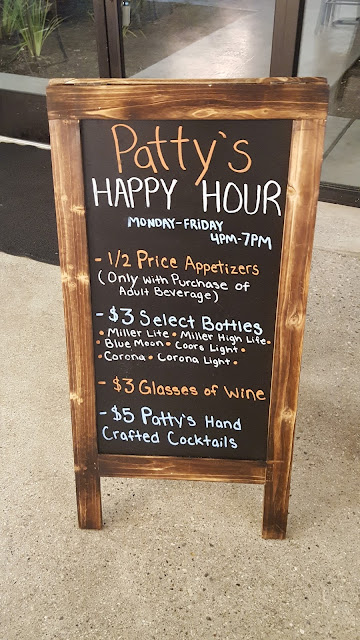 Patty's
HAPPY HOUR
MONDAY-FRIDAY
4PM-7PM
- 1/2 Price Appetizers
(Only with Purchase of
Adult Beverage)
- $3 Select Bottles
• Miller Lite • Miller High Life •
• Blue Moon • Coors Light •
• Corona • Corona Light •
- $3 Glasses of Wine
- $5 Patty's Hand
Crafted Cocktails